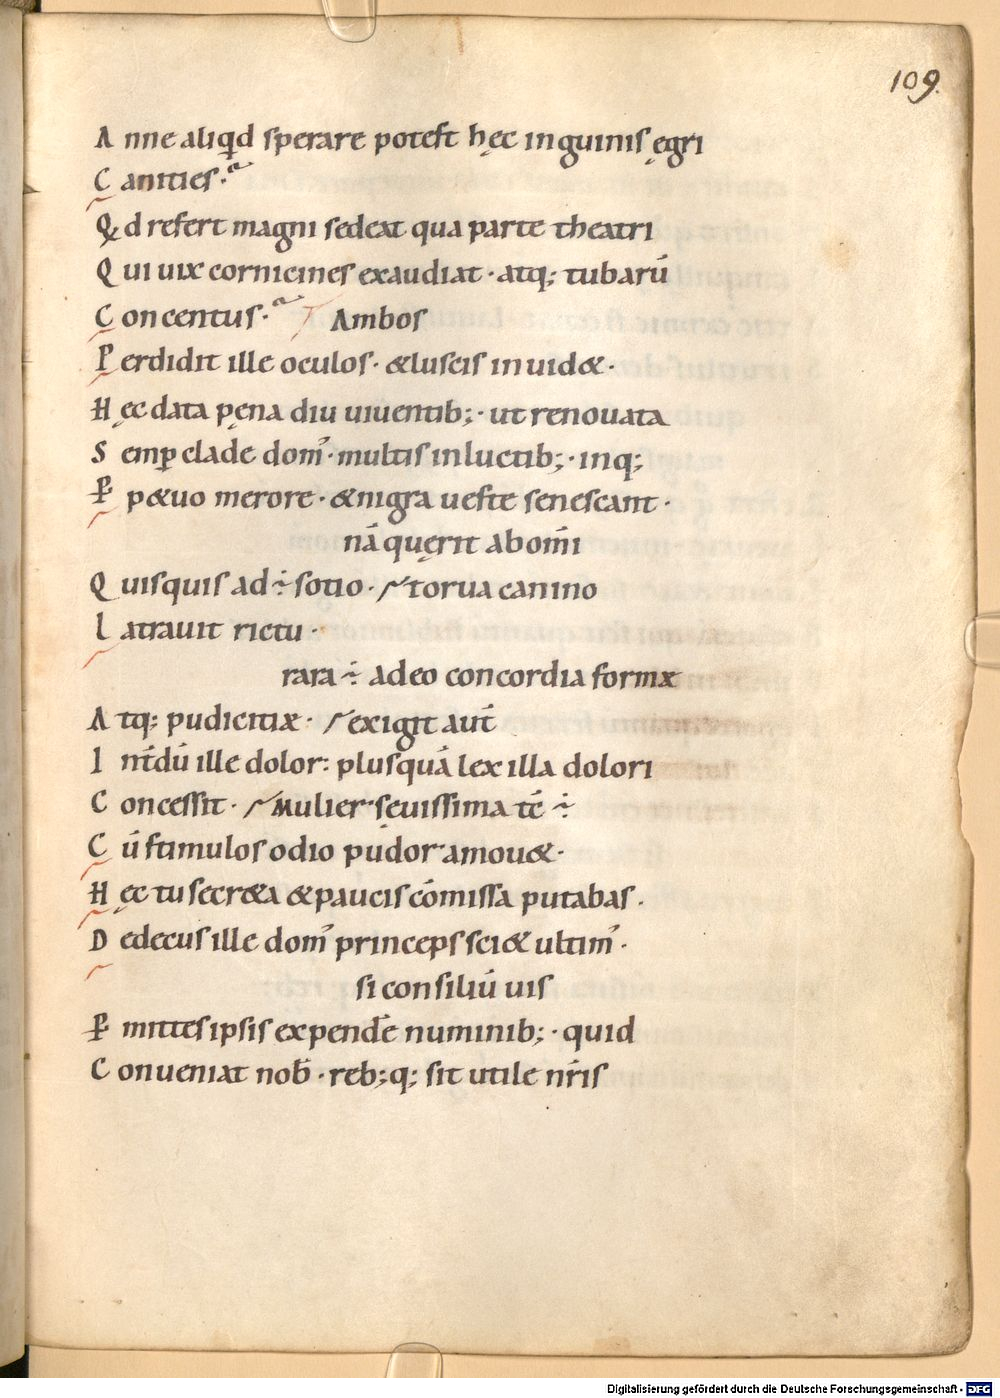 109.
A nne aliqd sperare potest hęc inguinis ęgri
C anities·
Q d refert magni sedeat qua parte theatri
Q ui uix cornicines exaudiat · atq; tubarū
C oncentus· Ambos
P erdidit ille oculos · & luscis inuid& ·
H ęc data pęna diu uiuentib; · ut renouata
S emp̲ clade dom᾿ · multis in luctib; · inq;
P p&uo merore · & nigra ueste senescant ·
nā quęrit abom̄i
Q uisquis ad ÷ sotio · torua canino
L atrauit rictu ·
rara ÷ adeo concordia formæ
A tq; pudicitiæ · exigit aut̄
I nt̄dū ille dolor: plus quā lex illa dolori
C oncessit · Mulier sęuissima tc̄ ÷
C ū stimulos odio pudor amou& ·
H ęc tu secr&a & paucis cōmissa putabas ·
D edecus ille dom᾿ princeps sci& ultim᾿ ·
si consiliū uis
P mittes ipsis expende numinib; · quid
C onueniat nob̄ · reb; q; sit utile nr̄is
Digitalisierung gefördert durch die Deutsche Forschungsgemeinschaft - DFG